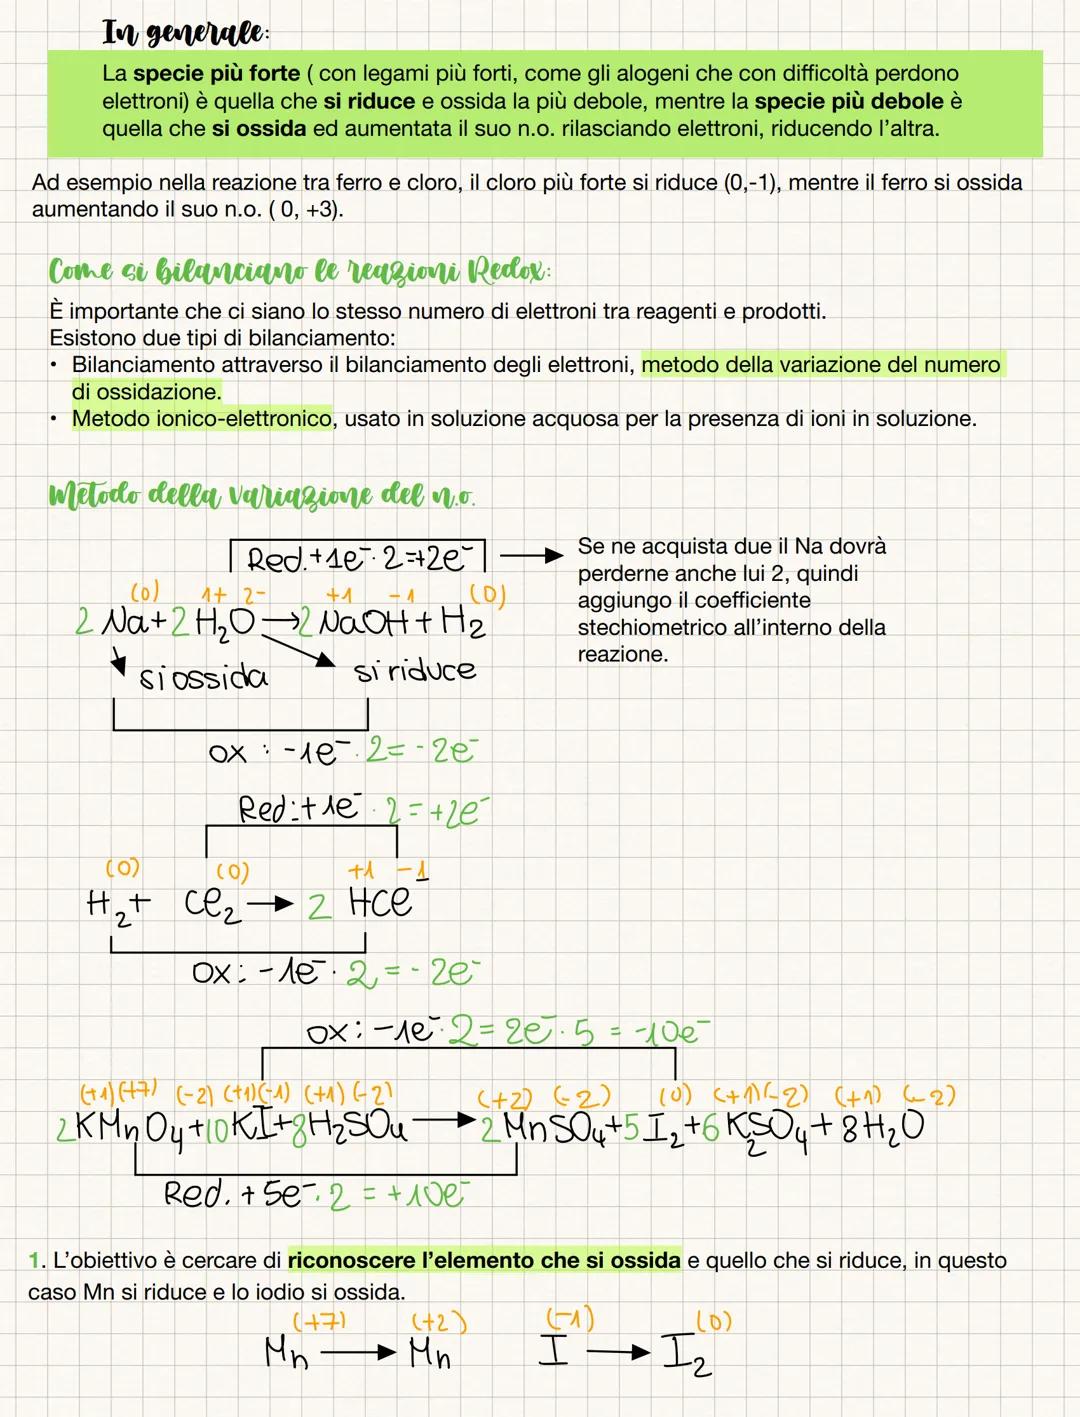 In generale:
La specie più forte ( con legami più forti, come gli alogeni che con difficoltà perdono
elettroni) è quella che si riduce e ossida la più debole, mentre la specie più debole è
quella che si ossida ed aumentata il suo n.o. rilasciando elettroni, riducendo l'altra.
Ad esempio nella reazione tra ferro e cloro, il cloro più forte si riduce (0,-1), mentre il ferro si ossida
aumentando il suo n.o. ( 0, +3).
Come si bilanciano le reazioni Redox:
È importante che ci siano lo stesso numero di elettroni tra reagenti e prodotti.
Esistono due tipi di bilanciamento:
• Bilanciamento attraverso il bilanciamento degli elettroni, metodo della variazione del numero
di ossidazione.
• Metodo ionico-elettronico, usato in soluzione acquosa per la presenza di ioni in soluzione.
Metodo della variazione del n.o.
Red.+1e⁻·2=+2e⁻
Se ne acquista due il Na dovrà
perderne anche lui 2, quindi
aggiungo il coefficiente
stechiometrico all'interno della
reazione.
(0) 1+ 2- +1 -1 (0)
2 Na+2 H₂O→2 NaOH+H₂
si ossida si riduce
ox : -1e⁻·2= -2e⁻
Red:+1e⁻·2=+2e⁻
(0) (0) +1 -1
H₂+ Cl₂→ 2 HCl
OX: -1e⁻·2=-2e⁻
ox: -1e⁻·2=2e⁻·5 = -10e⁻
(+1)(+7) (-2) (+1)(-1) (+1)(-2) (+2) (-2) (0) (+1)(-2) (+1) (-2)
2KMnO₄+10KI+8H₂SO₄→2MnSO₄+5I₂+6K₂SO₄+8H₂O
Red. +5e⁻·2 = +10e⁻
1. L'obiettivo è cercare di riconoscere l'elemento che si ossida e quello che si riduce, in questo
caso Mn si riduce e lo iodio si ossida.
(+7) (+2) (-1) (0)
Mn → Mn I → I₂